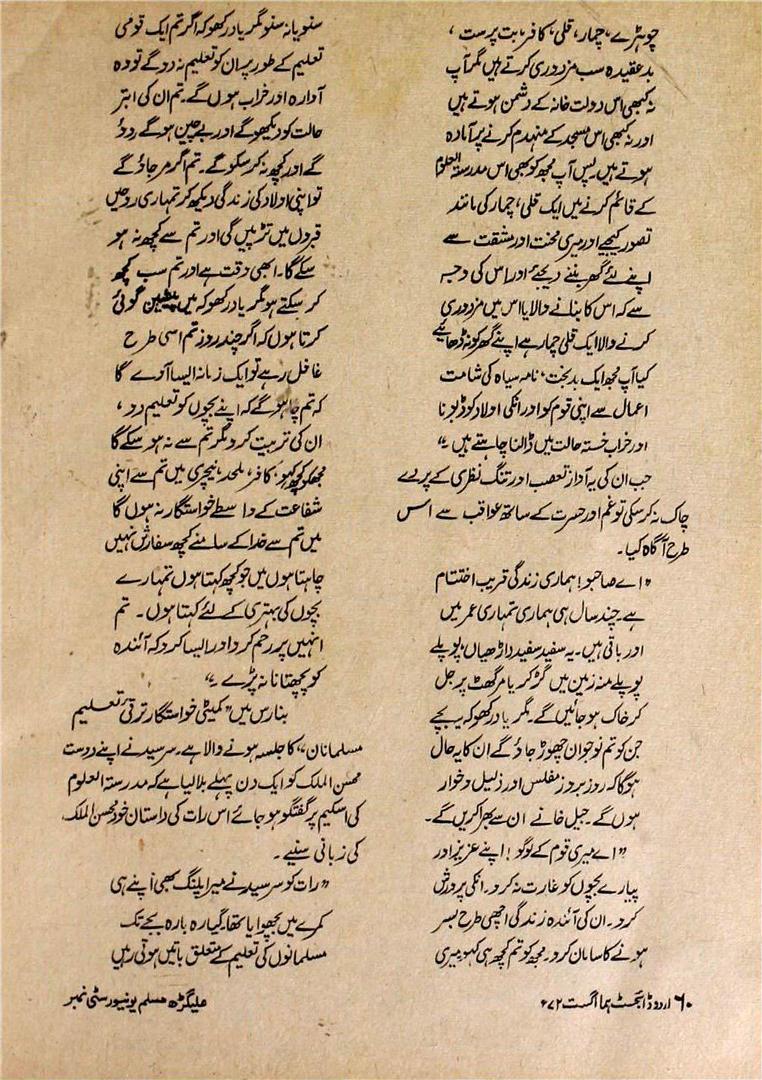 چوہڑے، چمار، قلی، کافر، بت پرست،
بدعقیدہ سب مزدوری کرتے ہیں مگر آپ
نہ کبھی اس دولت خانہ کے دشمن ہوتے ہیں
اور نہ کبھی اس مسجد کے منہدم کرنے پر آمادہ
ہوتے ہیں۔ پس آپ مجھ کو بھی اس مدرستہ العلوم
کے قائم کرنے میں ایک قلی، چمار کی مانند
تصور کیجیے اور میری محنت اور مشقت سے
اپنے لئے گھر بننے دیجئے اور اس کی وجہ
سے کہ اس کا بنانے والا یا اس میں مزدوری
کرنے والا ایک قلی چمار ہے اپنے گھر کو نہ ڈھائیے
کیا آپ مجھ ایک بدبخت، نامہ سیاہ کی شامت
اعمال سے اپنی قوم کو اور انکی اولاد کو ڈبونا
اور خراب خستہ حالت میں ڈالنا چاہتے ہیں ۔"
جب ان کی یہ آواز تعصب اور تنگ نظری کے پردے
چاک نہ کر سکی تو غم اور حسرت کے ساتھ عواقب سے اس
طرح آگاہ کیا۔
"اے صاحبو! ہماری زندگی قریب اختتام
ہے۔ چند سال ہی ہماری تمہاری عمر میں
اور باقی ہیں۔ یہ سفید سفید داڑھیاں، پوپلے
پوپلے منہ زمین میں گڑ کر یا مرگھٹ پر جل
کر خاک ہو جائیں گے۔ مگر یاد رکھو کہ یہ بچے
جن کو تم نوجوان چھوڑ جاؤ گے ان کا یہ حال
ہوگا کہ روز بروز مفلس اور ذلیل و خوار
ہوں گے۔ جیل خانے ان سے بھرا کریں گے۔
"اے میری قوم کے لوگو! اپنے عزیز اور
پیارے بچوں کو غارت نہ کرو۔ انکی پرورش
کرو۔ ان کی آئندہ زندگی اچھی طرح بسر
ہونے کا سامان کرو۔ مجھ کو تم کچھ ہی کہو، میری
سنو یا نہ سنو مگر یاد رکھو کہ اگر تم ایک قومی
تعلیم کے طور پر ان کو تعلیم نہ دو گے تو وہ
آوارہ اور خراب ہوں گے۔ تم ان کی ابتر
حالت کو دیکھو گے اور بے چین ہو گے روؤ
گے اور کچھ نہ کر سکو گے۔ تم اگر مر جاؤ گے
تو اپنی اولاد کی زندگی دیکھ کر تمہاری روحیں
قبروں میں تڑپیں گی اور تم سے کچھ نہ ہو
سکے گا۔ ابھی وقت ہے اور تم سب کچھ
کر سکتے ہو مگر یاد رکھو کہ میں پیشین گوئی
کرتا ہوں کہ اگر چند روز تم اسی طرح
غافل رہے تو ایک زمانہ ایسا آوے گا
کہ تم چاہو گے کہ اپنے بچوں کو تعلیم دو،
ان کی تربیت کرو مگر تم سے نہ ہو سکے گا
مجھکو کچھ کہو، کافر، ملحد، نیچری میں تم سے اپنی
شفاعت کے واسطے خواستگار نہ ہوں گا
میں تم سے خدا کے سامنے کچھ سفارش نہیں
چاہتا ہوں میں جو کچھ کہتا ہوں تمہارے
بچوں کی بہتری کے لئے کہتا ہوں۔ تم
انہیں پر رحم کرو اور ایسا کرو کہ آئندہ
کو پچھتانا نہ پڑے ۔"
بنارس میں "کمیٹی خواستگار ترقی تعلیم
مسلمانان" کا جلسہ ہونے والا ہے۔ سرسید نے اپنے دوست
محسن الملک کو ایک دن پہلے بلا لیا ہے کہ مدرستہ العلوم
کی اسکیم پر گفتگو ہو جائے اس رات کی داستان خود محسن الملک
کی زبانی سنیے۔
"رات کو سرسید نے میرا پلنگ بھی اپنے ہی
کمرے میں بچھوایا تھا۔ گیارہ بارہ بجے تک
مسلمانوں کی تعلیم کے متعلق باتیں ہوتی رہیں
۶۰ اردو ڈائجسٹ ہما اگست ۷۲ء
علیگڑھ مسلم یونیورسٹی نمبر